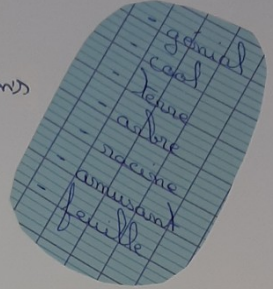 ns
- génial
- cool
- terre
- arbre
- racine
- amusant
- feuille